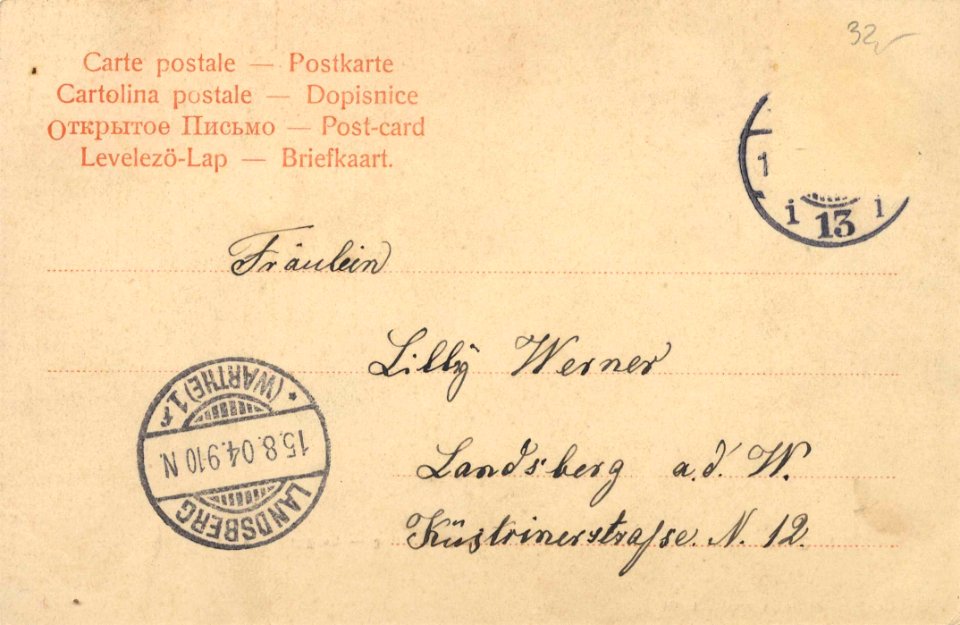 32
Carte postale — Postkarte
Cartolina postale — Dopisnice
Открытое Письмо — Post-card
Levelező-Lap — Briefkaart.
1
i 13 i
Fräulein
Lilly Werner
Landsberg a.d. W.
Küstrinerstraſse. N. 12.
LANDSBERG
15.8.04.9-10 N.
* (WARTHE) 1.r